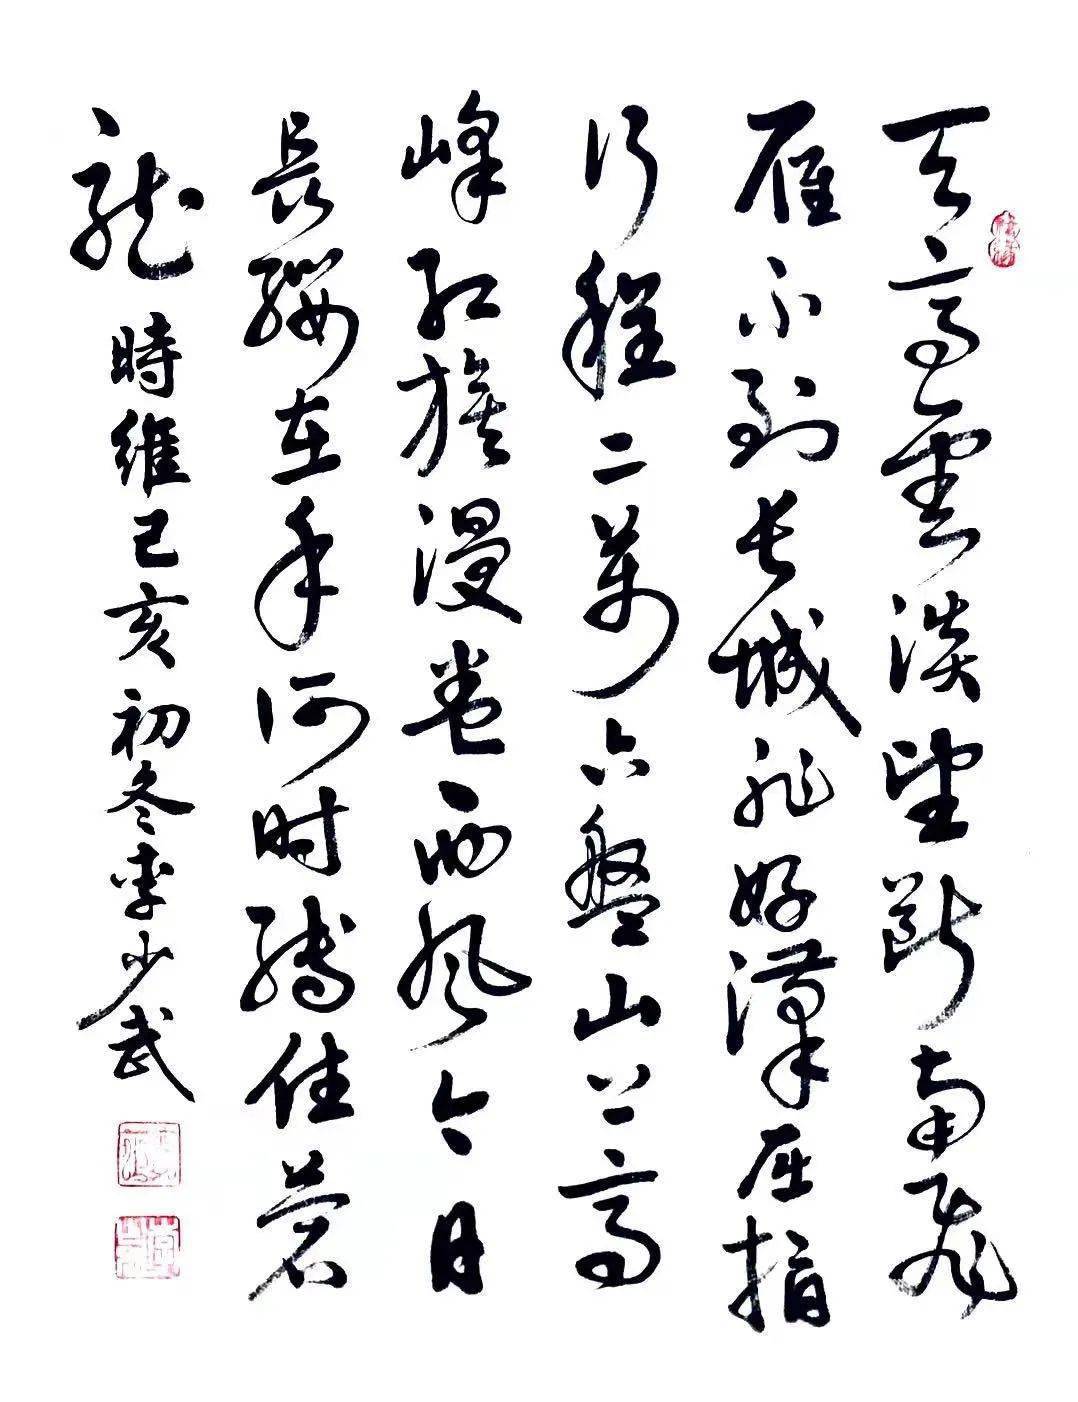 天高雲淡望斷南飛
雁不到长城非好漢屈指
行程二萬六盤山上高
峰紅旗漫卷西風今日
長纓在手何时縛住蒼
龍 時維己亥初冬李少武